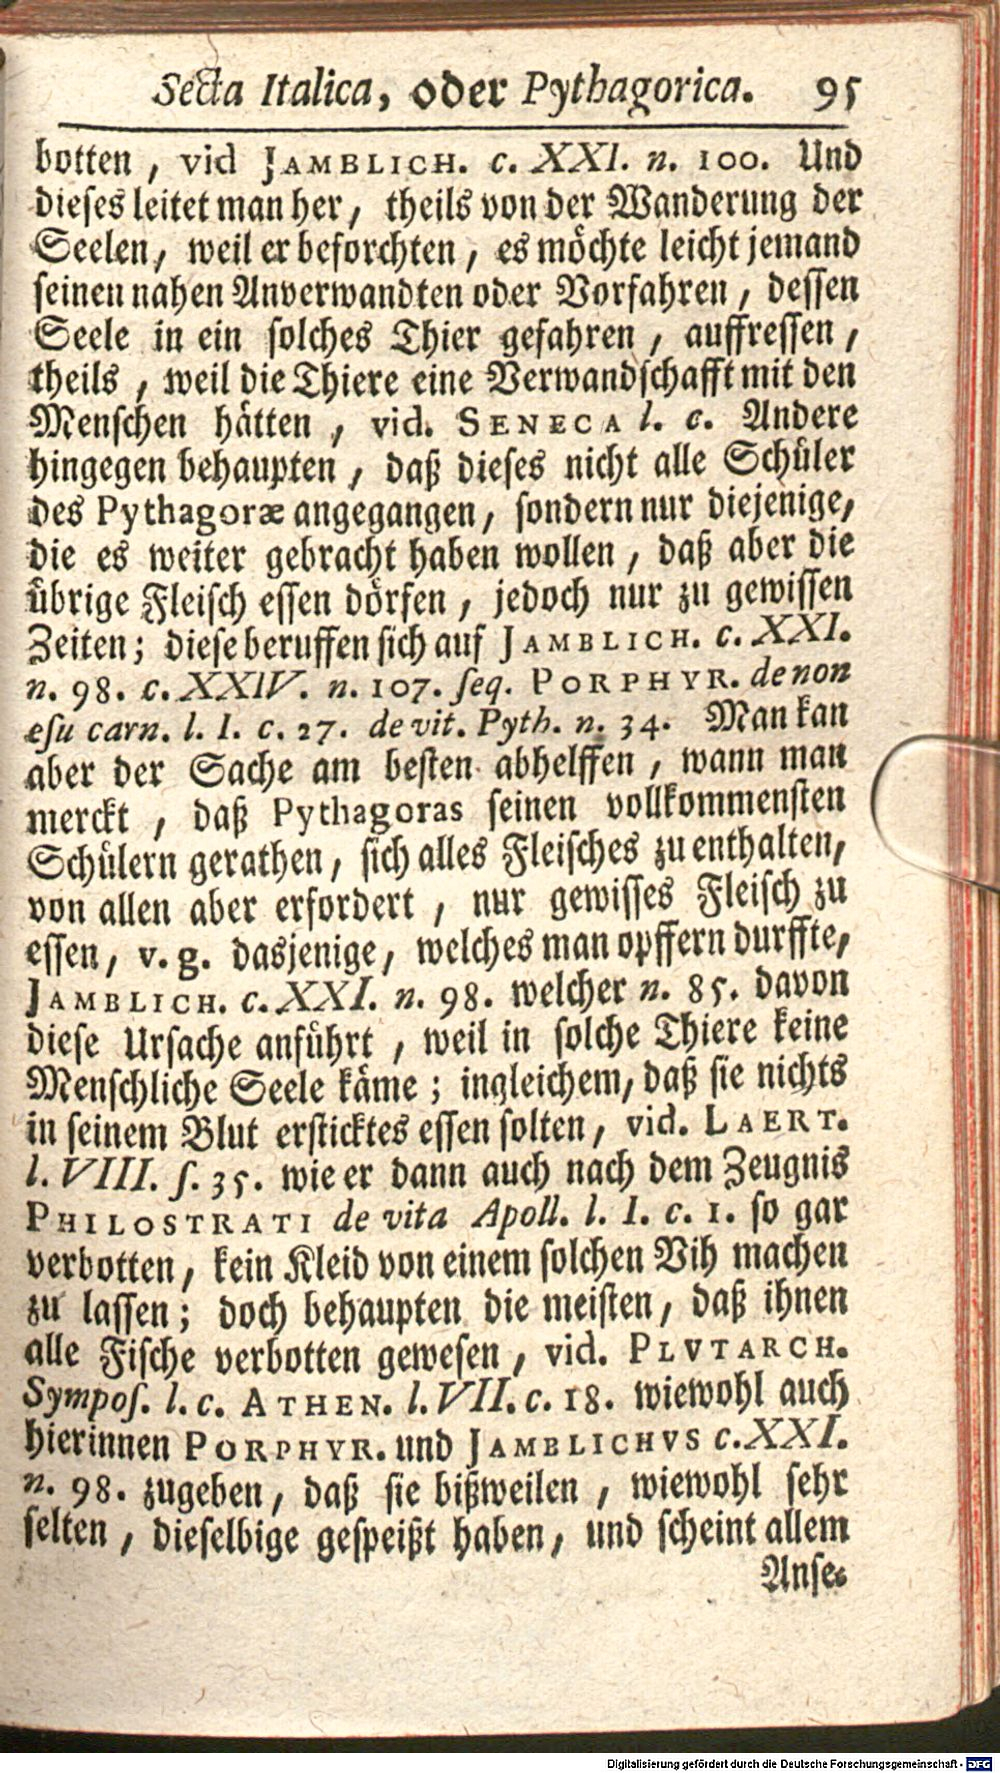 Secta Italica, oder Pythagorica. 95
botten, vid JAMBLICH. c. XXI. n. 100. Und
dieses leitet man her, theils von der Wanderung der
Seelen, weil er beforchten, es möchte leicht jemand
seinen nahen Anverwandten oder Vorfahren, dessen
Seele in ein solches Thier gefahren, auffressen,
theils, weil die Thiere eine Verwandschafft mit den
Menschen hätten, vid. SENECA l. c. Andere
hingegen behaupten, daß dieses nicht alle Schüler
des Pythagoræ angegangen, sondern nur diejenige,
die es weiter gebracht haben wollen, daß aber die
übrige Fleisch essen dörfen, jedoch nur zu gewissen
Zeiten; diese beruffen sich auf JAMBLICH. c. XXI.
n. 98. c. XXIV. n. 107. seq. PORPHYR. de non
esu carn. l. I. c. 27. de vit. Pyth. n. 34. Man kan
aber der Sache am besten abhelffen, wann man
merckt, daß Pythagoras seinen vollkommensten
Schülern gerathen, sich alles Fleisches zu enthalten,
von allen aber erfordert, nur gewisses Fleisch zu
essen, v. g. dasjenige, welches man opffern durffte,
JAMBLICH. c. XXI. n. 98. welcher n. 85. davon
diese Ursache anführt, weil in solche Thiere keine
Menschliche Seele käme; ingleichem, daß sie nichts
in seinem Blut ersticktes essen solten, vid. LAERT.
l. VIII. s. 35. wie er dann auch nach dem Zeugnis
PHILOSTRATI de vita Apoll. l. I. c. 1. so gar
verbotten, kein Kleid von einem solchen Vih machen
zu lassen; doch behaupten die meisten, daß ihnen
alle Fische verbotten gewesen, vid. PLVTARCH.
Sympos. l. c. ATHEN. l. VII. c. 18. wiewohl auch
hierinnen PORPHYR. und JAMBLICHVS c. XXI.
n. 98. zugeben, daß sie bißweilen, wiewohl sehr
selten, dieselbige gespeißt haben, und scheint allem
Anse-
Digitalisierung gefördert durch die Deutsche Forschungsgemeinschaft - DFG